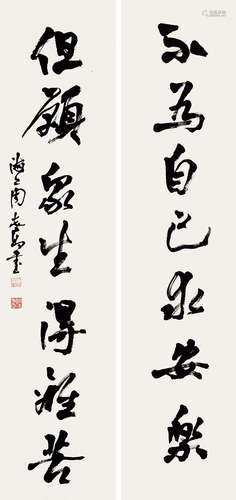 不為自己求安樂
但願衆生得離苦
海上周慧珺書